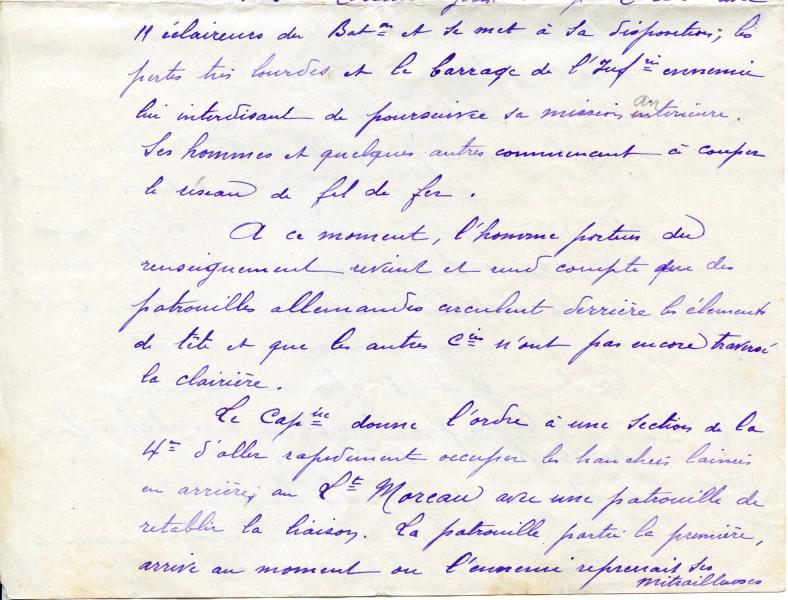 11 éclaireurs du Bat^on et se met à sa disposition; les
pertes très lourdes et le barrage de l'Inf^rie ennemie
lui interdisant de poursuivre sa mission antérieure.
Ses hommes et quelques autres commencent à couper
le réseau de fil de fer.
A ce moment, l'homme porteur du
renseignement revient et rend compte que des
patrouilles allemandes circulent derrière les éléments
de tête et que les autres C^ies n'ont pas encore traversé
la clairière.
Le Cap^ne donne l'ordre à une section de la
4^e d'aller rapidement occuper les tranchées laissées
en arrière; au L^t Moreau avec une patrouille de
retablir la liaison. La patrouille partie la première,
arrive au moment ou l'ennemi reprenait ses
mitrailleuses